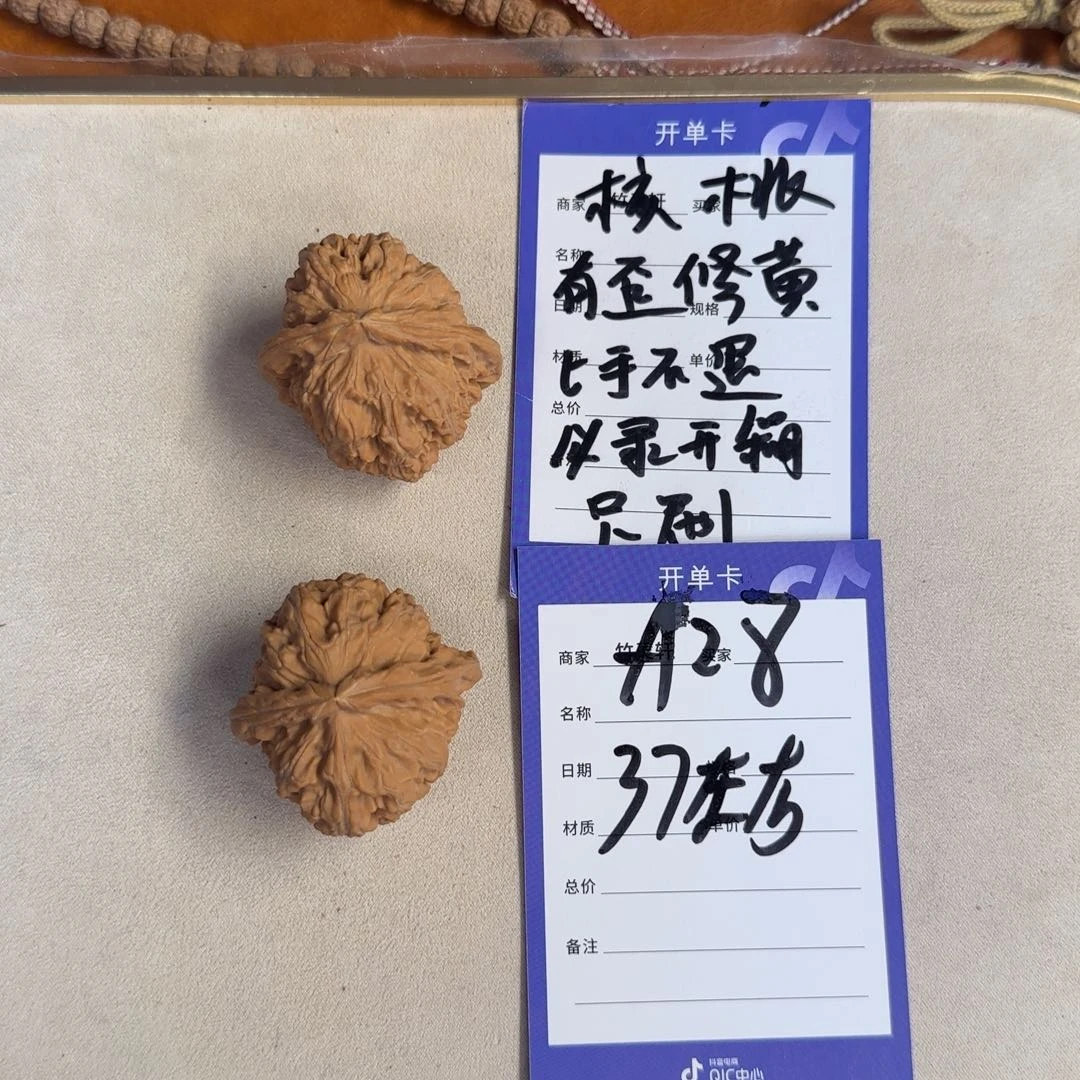 开单卡
核桃
商家 买家
名称
有歪修黄
日期 规格
材质 单价
上手不退
总价
必录开箱
只刷
开单卡
A28
商家 竹 轩 买家
名称
37左右
日期
材质 单价
总价
备注
抖音电商
QIC中心